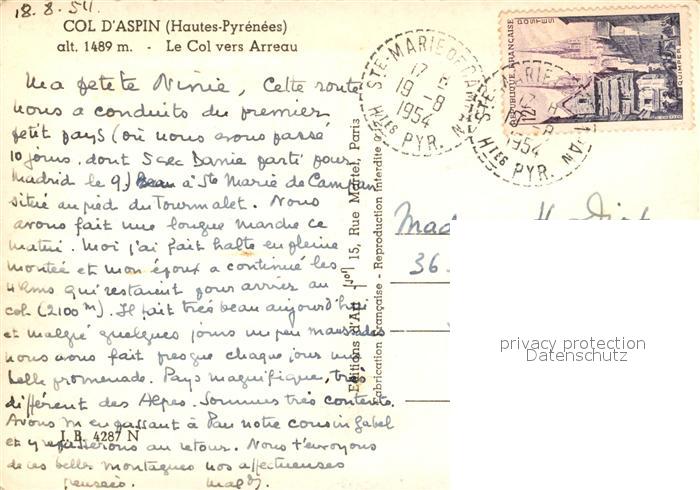 18.8.54.
COL D'ASPIN (Hautes-Pyrénées)
alt. 1489 m. - Le Col vers Arreau
Ma petite Ninie, Cette route
nous a conduits du premier
petit pays (où nous avons passé
10 jours, dont 5 avec Danie parti pour
Madrid le 9) à Ste Marie de Campan
situé au pied du Tourmalet. Nous
avons fait une longue marche ce
matin. Moi j'ai fait halte en pleine
montée et mon époux a continué les
4 kms qui restaient pour arriver au
col (2100 m). Il fait très beau aujourd'hui
et malgré quelques jours un peu maussades
nous avons fait presque chaque jour une
belle promenade. Pays magnifique, très
différent des Alpes. Sommes très contents.
Avons vu en passant à Pau notre cousin
J. B. 4287 N
et y au retour. Nous t'envoyons
de ces belles montagnes nos affectueuses
pensées.
Editions d'Art 15, Rue Martel, Paris
Fabrication Française - Reproduction Interdite
STE-MARIE DE CAMPAN
17 H
19-8
1954
Htes PYR.
STE-MARIE CAMPAN
1954
Htes PYR.
POSTES
RÉPUBLIQUE FRANÇAISE
QUIMPER
12F
36.
privacy protection
Datenschutz